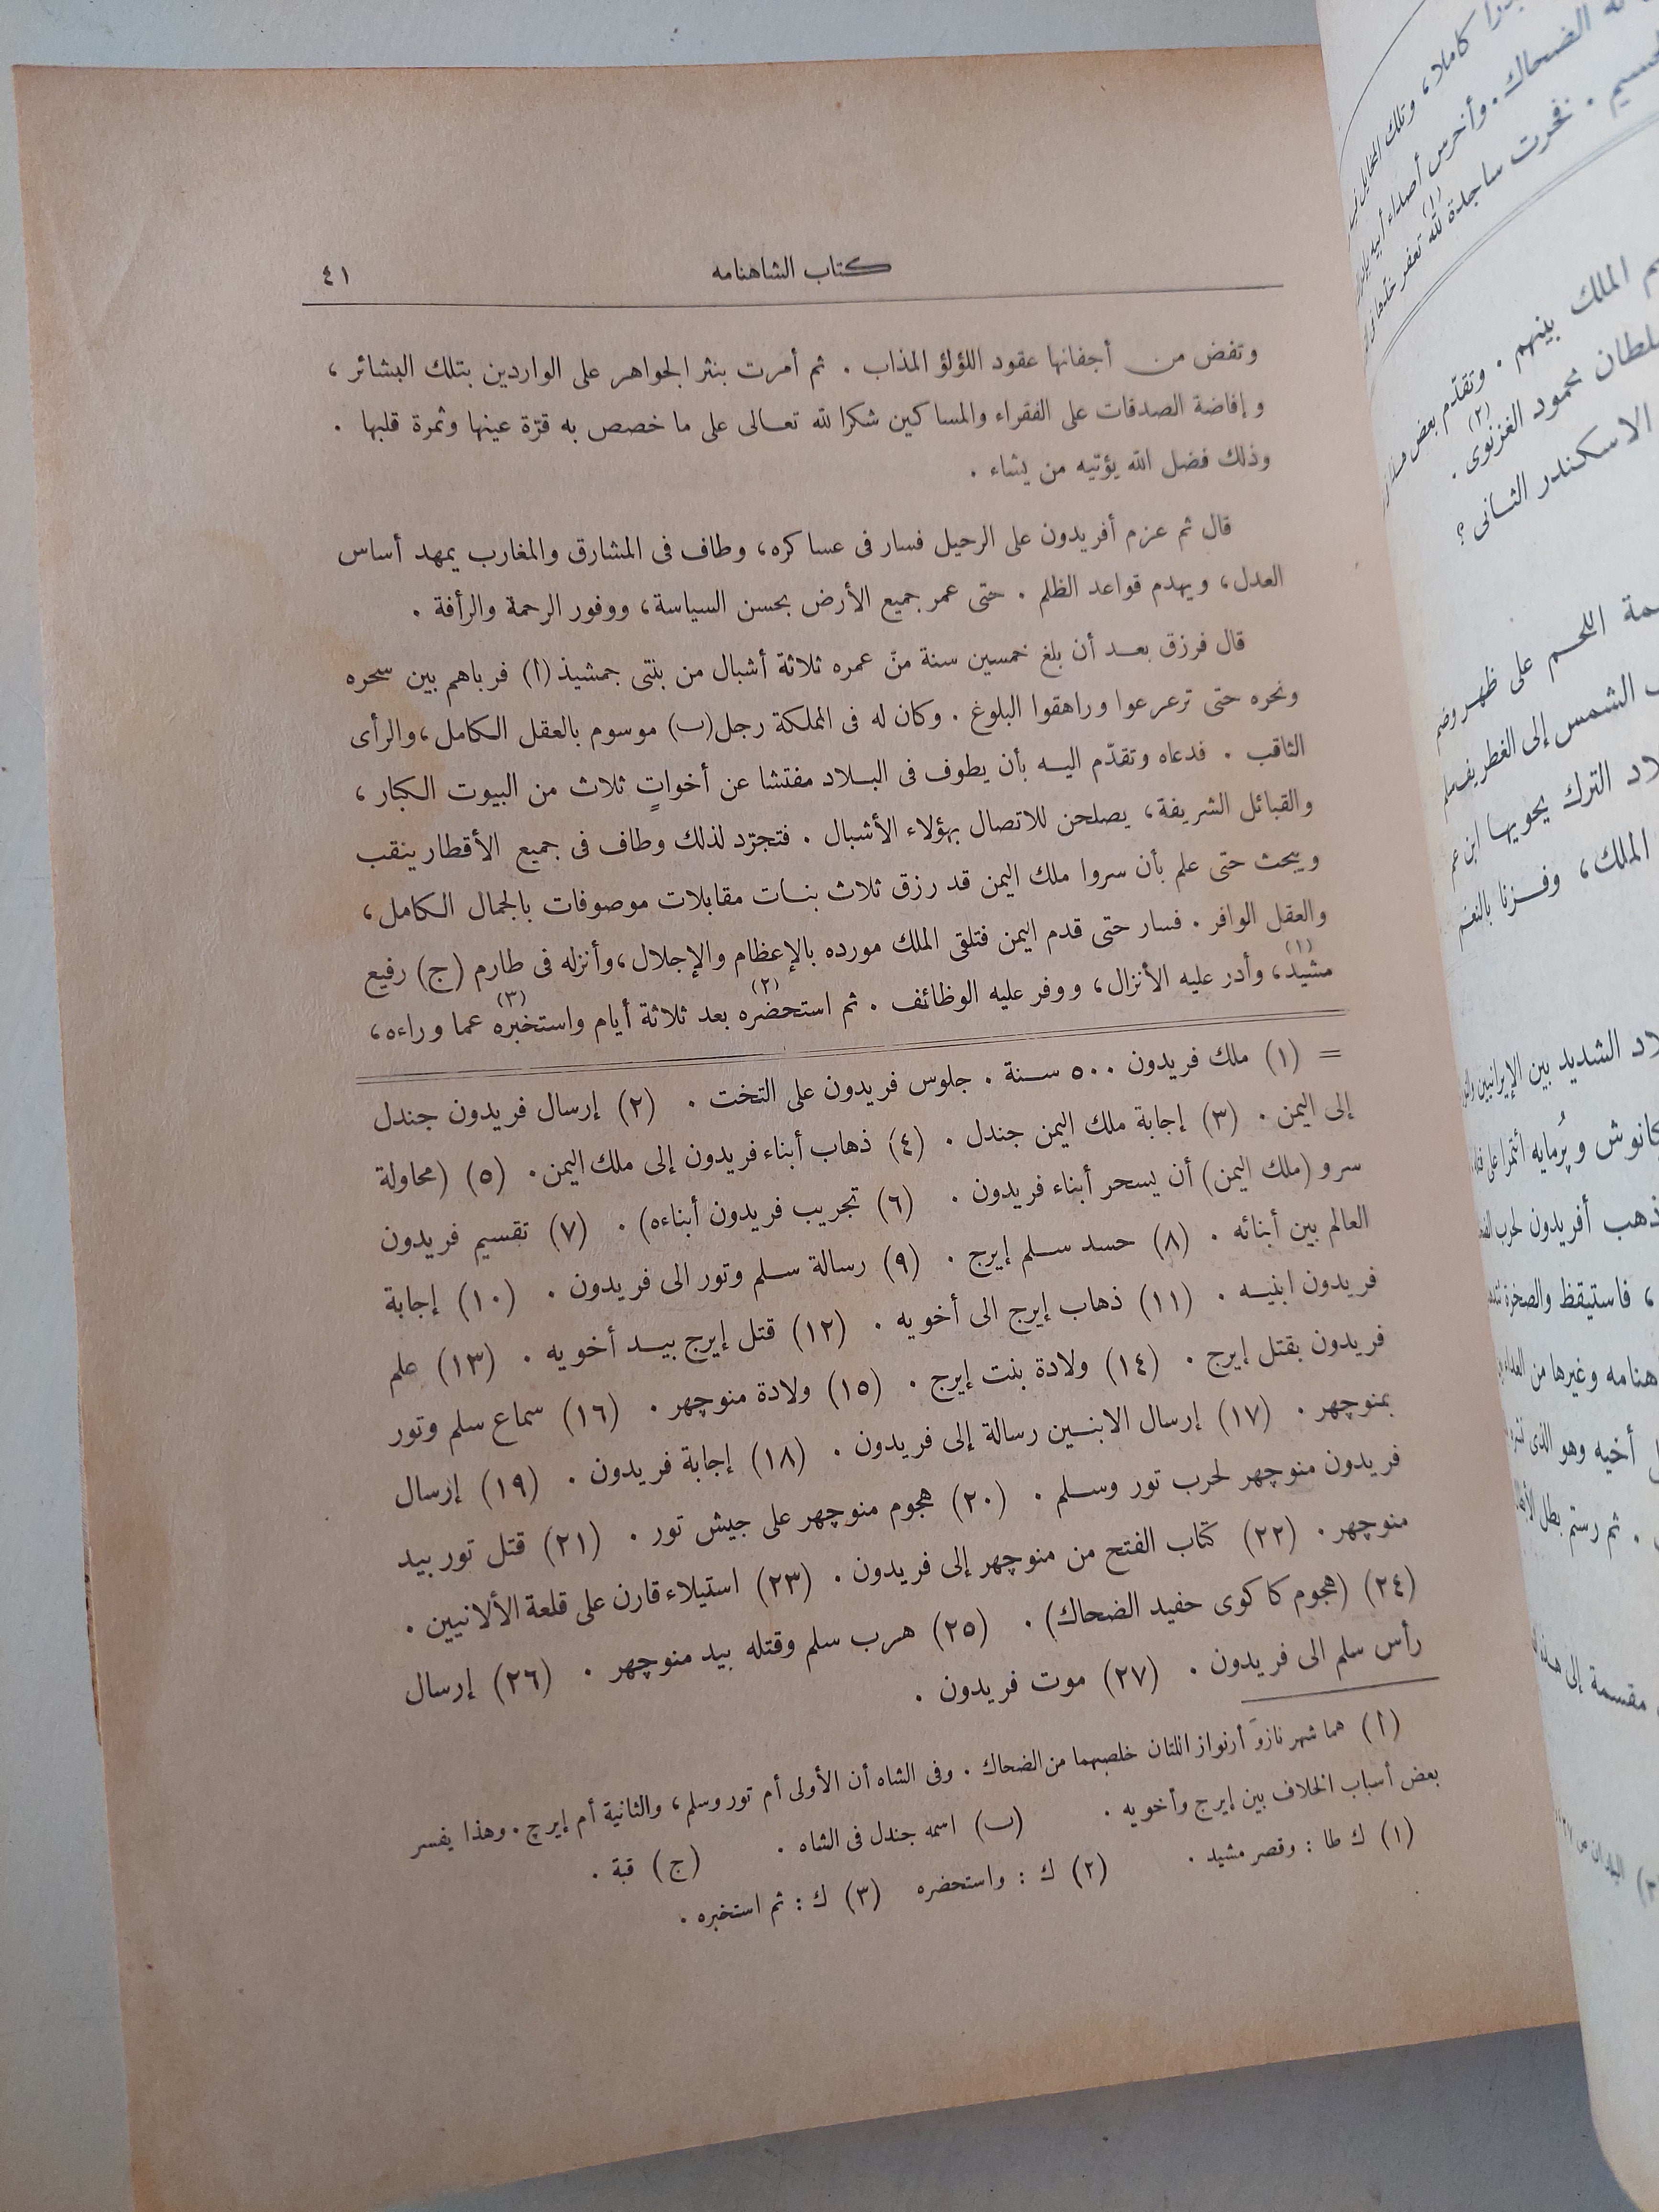 كتاب الشاهنامه ٤١
وتفض من أجفانها عقود اللؤلؤ المذاب . ثم أمرت بنثر الجواهر على الواردين بتلك البشائر ،
و إفاضة الصدقات على الفقراء والمساكين شكرا لله تعالى على ما خصص به قرّة عينها وثمرة قلبها .
وذلك فضل الله يؤتيه من يشاء .
قال ثم عزم أفريدون على الرحيل فسار فى عساكره، وطاف فى المشارق والمغارب يمهد أساس
العدل، ويهدم قواعد الظلم . حتى عمر جميع الأرض بحسن السياسة، ووفور الرحمة والرأفة .
قال فرزق بعد أن بلغ خمسين سنة منّ عمره ثلاثة أشبال من بنتى جمشيذ (ا) فرباهم بين سحره
ونحره حتى ترعرعوا وراهقوا البلوغ . وكان له فى المملكة رجل (ب) موسوم بالعقل الكامل، والرأى
الثاقب . فدعاه وتقدّم اليه بأن يطوف فى البلاد مفتشا عن أخواتٍ ثلاث من البيوت الكبار ،
والقبائل الشريفة، يصلحن للاتصال بهؤلاء الأشبال . فتجرّد لذلك وطاف فى جميع الأقطار ينقب
ويبحث حتى علم بأن سروا ملك اليمن قد رزق ثلاث بنات مقابلات موصوفات بالجمال الكامل،
والعقل الوافر . فسار حتى قدم اليمن فتلقى الملك مورده بالإعظام والإجلال، وأنزله فى طارم (ج) رفيع
مشيد(١)، وأدر عليه الأنزال، ووفر عليه الوظائف . ثم استحضره(٢) بعد ثلاثة أيام واستخبره(٣) عما وراءه،
= (١) ملك فريدون ٥٠٠ سنة . جلوس فريدون على التخت . (٢) إرسال فريدون جندل
إلى اليمن . (٣) إجابة ملك اليمن جندل . (٤) ذهاب أبناء فريدون إلى ملك اليمن . (٥) (محاولة
سرو (ملك اليمن) أن يسحر أبناء فريدون . (٦) تجريب فريدون أبناءه) . (٧) تقسيم فريدون
العالم بين أبنائه . (٨) حسد سلم إيرج . (٩) رسالة سلم وتور الى فريدون . (١٠) إجابة
فريدون ابنيه . (١١) ذهاب إيرج الى أخويه . (١٢) قتل إيرج بيد أخويه . (١٣) علم
فريدون بقتل إيرج . (١٤) ولادة بنت إيرج . (١٥) ولادة منوچهر . (١٦) سماع سلم وتور
بمنوچهر . (١٧) إرسال الابنين رسالة إلى فريدون . (١٨) إجابة فريدون . (١٩) إرسال
فريدون منوچهر لحرب تور وسلم . (٢٠) هجوم منوچهر على جيش تور . (٢١) قتل تور بيد
منوچهر . (٢٢) كتاب الفتح من منوچهر إلى فريدون . (٢٣) استيلاء قارن على قلعة الألانيين .
(٢٤) (هجوم كاكوى حفيد الضحاك) . (٢٥) هرب سلم وقتله بيد منوچهر . (٢٦) إرسال
رأس سلم الى فريدون . (٢٧) موت فريدون .
(ا) هما شهرنازوَ أرنواز اللتان خلصهما من الضحاك . وفى الشاه أن الأولى أم تور وسلم، والثانية أم إيرج . وهذا يفسر
بعض أسباب الخلاف بين إيرج وأخويه . (ب) اسمه جندل فى الشاه . (ج) قبة .
(١) ك طا : وقصر مشيد . (٢) ك : واستحضره (٣) ك : ثم استخبره .
كاملا، وتلك
الضحاك . وأخرس أصداء
فخرت ساجدة لله تعفر
الملك بينهم . وتقدّم بعض
محمود الغزنوى(٢) .
الاسكندر الثانى ؟
اللحم على ظهر وضم
الشمس إلى الغطريف سلم
الترك يحويها ابن عم
الملك، وفزنا بالنعم
الشديد بين الإيرانيين
وپُرمايه ائتمرا على
ذهب أفريدون لحرب
، فاستيقظ والصخرة
وغيرها من
أخيه وهو الذى
. ثم رستم بطل
مقسمة إلى